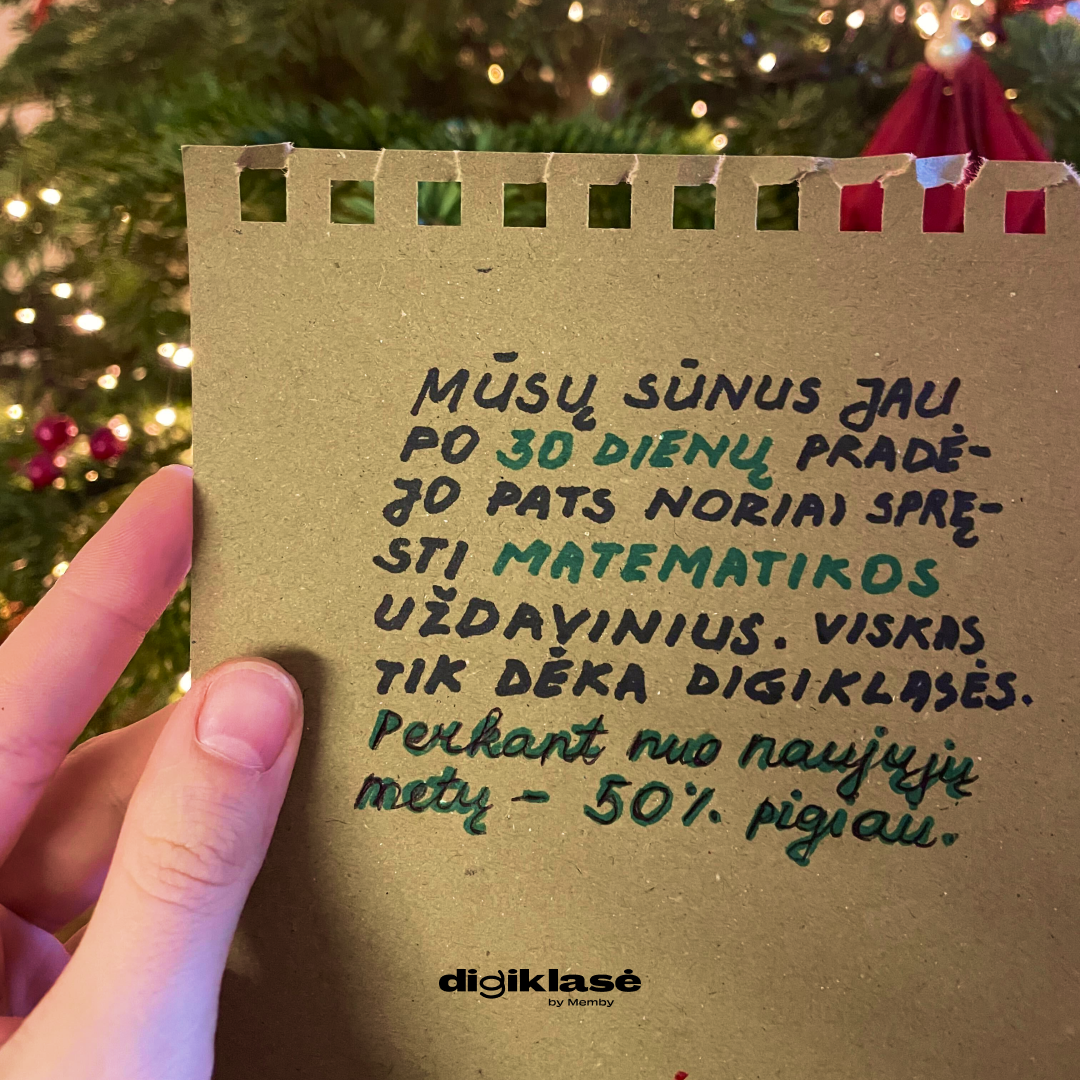 MŪSŲ SŪNUS JAU
PO 30 DIENŲ PRADĖ-
JO PATS NORIAI SPRĘ-
STI MATEMATIKOS
UŽDAVINIUS. VISKAS
TIK DĖKA DIGIKLASĖS.
Perkant nuo naujųjų
metų - 50% pigiau.
digiklasė
by Memby